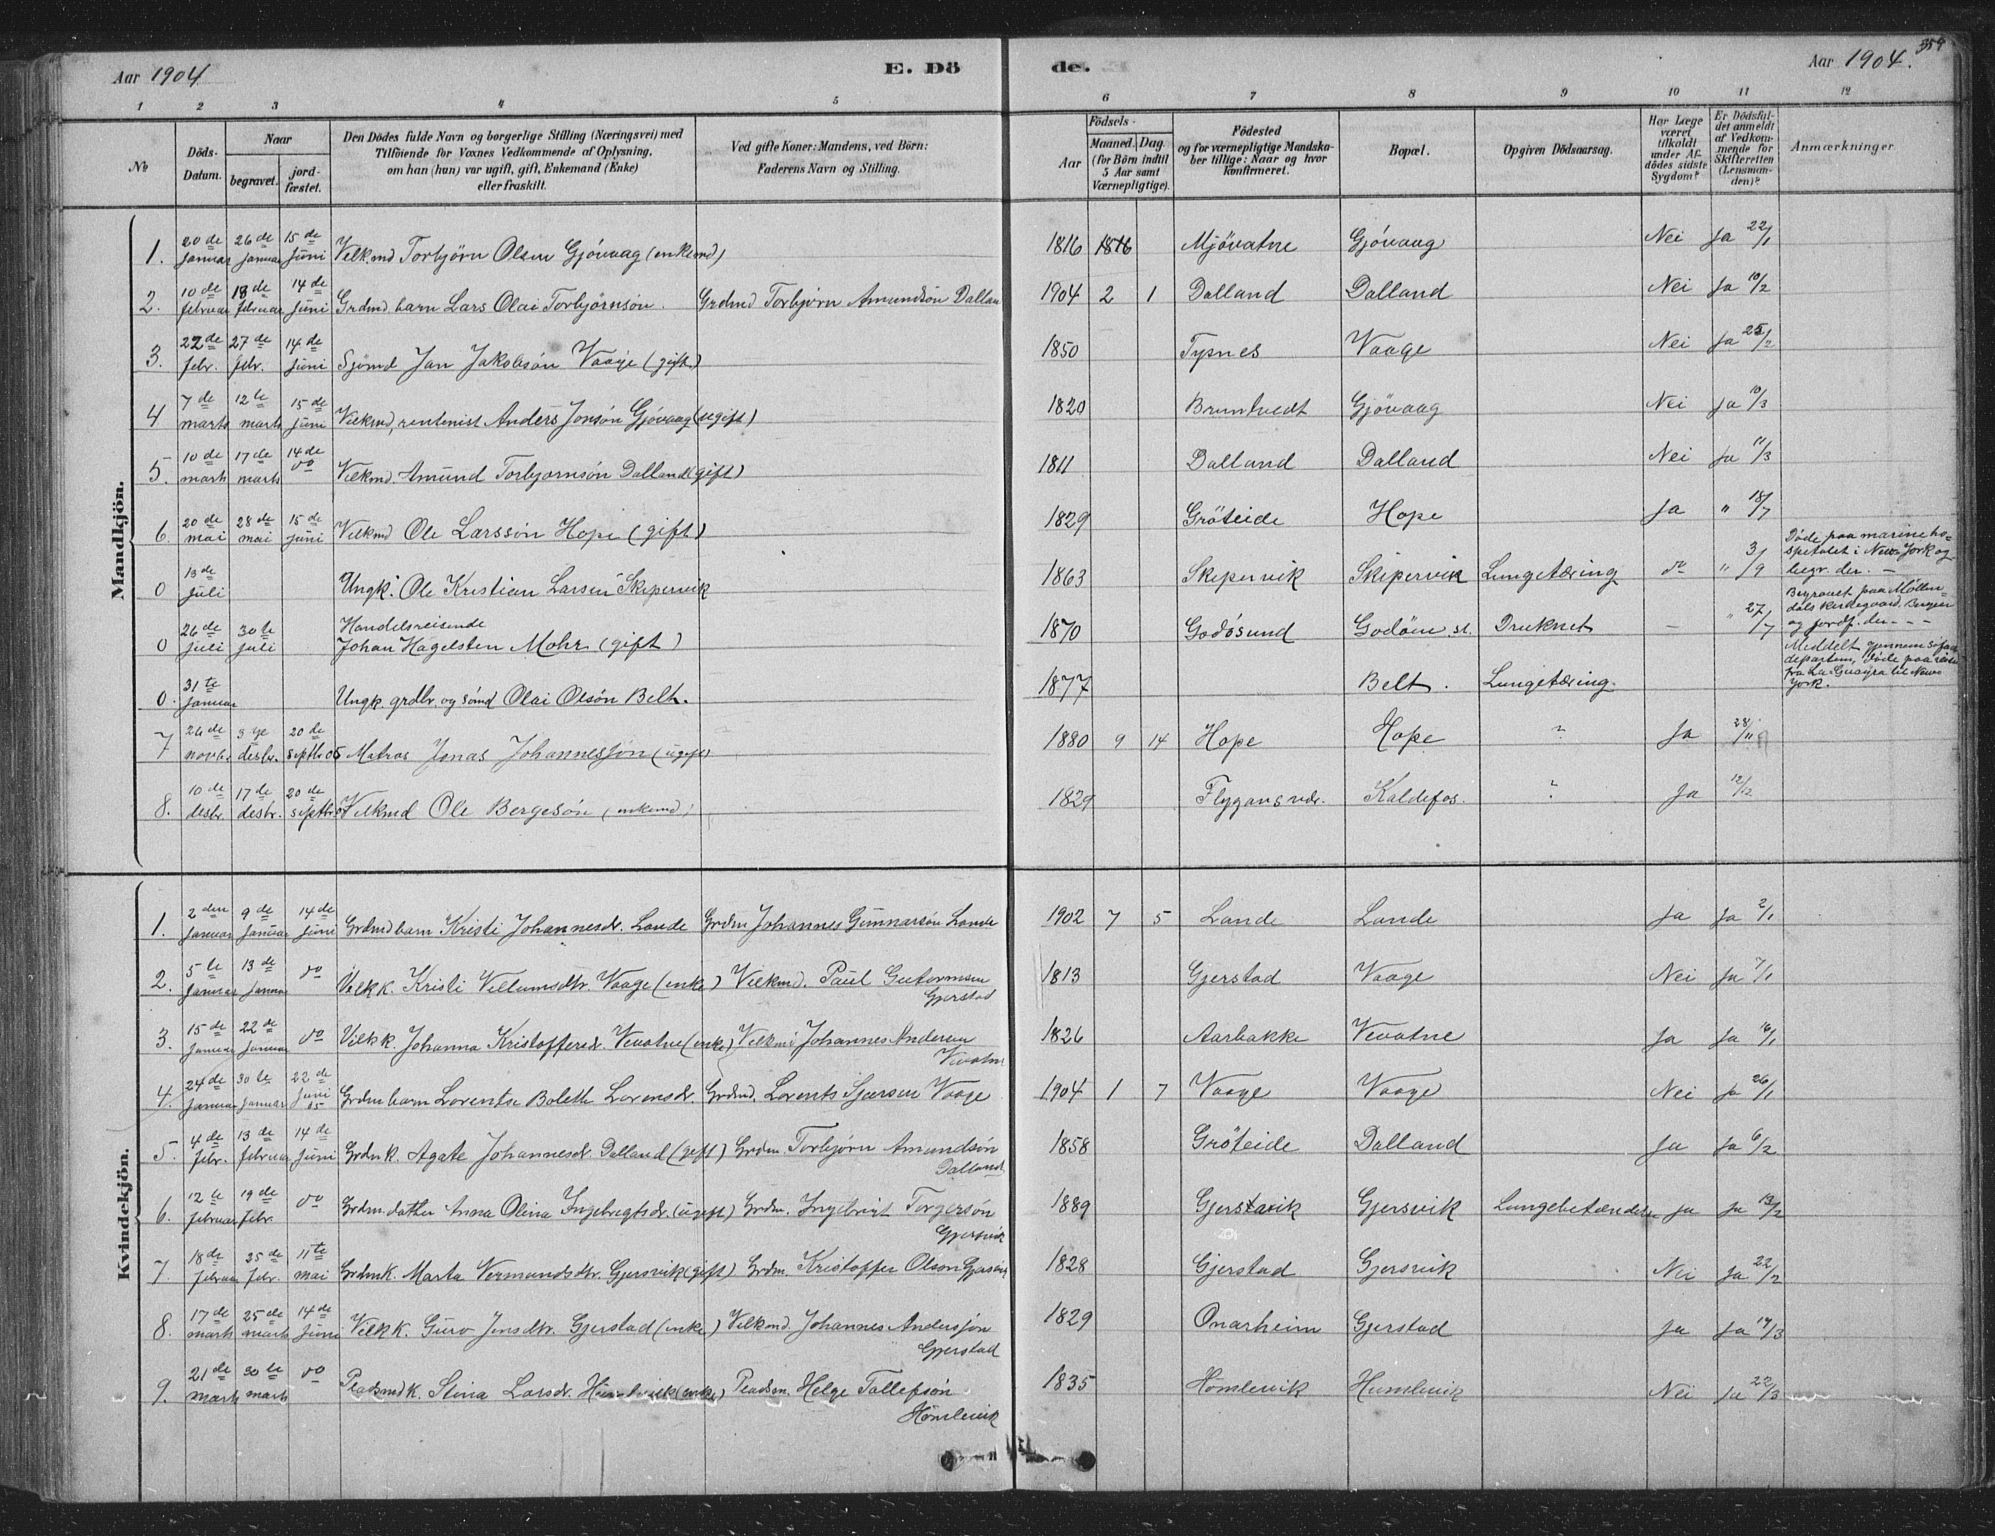 Aar 1904. E. Dö de. Aar 1904. 354
1 2 3 4 5 6 7 8 9 10 11 12
No
Döds-Datum.
Naar
begravet.
jord-fæstet.
Den Dödes fulde Navn og borgerlige Stilling (Næringsvei) med
Tilföiende for Voxnes Vedkommende af Oplysning,
om han (hun) var ugift, gift, Enkemand (Enke)
eller fraskilt.
Ved gifte Koner: Mandens, ved Börn:
Faderens Navn og Stilling.
Födsels-
Aar
Maaned. Dag.
(for Börn indtil
5 Aar samt
Værnepligtige).
Födested
og for værnepligtige Mandska-
ber tillige: Naar og hvor
konfirmeret.
Bopæl.
Opgiven Dödsaarsag.
Har Læge
været
tilkaldt
under Af-
dödes sidste
Sygdom?
Er Dödsfal-
det anmeldt
af Vedkom-
mende for
Skifteretten
(Lensman-
den)?
Anmærkninger
Mandkjön.
1. 20de Januar 26de Januar 15de Juni Velk.md Torbjörn Olsen Gjövaag (enkemd) 1816 1816 Mjövatne Gjövaag Nei Ja 22/1
2. 10de februar 18de februar 14de Juni Grdmd. barn Lars Olai Torbjörnsön. Grdmd Torbjörn Amundsön Dalland 1904 2 1 Dalland Dalland Nei Ja 10/2
3. 22de febr. 27de febr. 14de Juni Sjömd Jan Jakobsön Vaage (gift) 1850 Tysnes Vaage Nei Ja 25/2
4 7de marts 12te marts 15de Juni Velkmd, rentenist Anders Jonsön Gjövaag (ugift) 1820 Bruntvedt Gjövaag Nei Ja 10/3
5. 10de marts 17de marts 14de do Velkmd. Amund Torbjornsön Dalland (gift) 1811 Dalland Dalland Nei Ja 11/3
6. 20de mai 28de mai 15de Juni Velkmd Ole Larssön Hope (gift) 1829 Gröteide Hope Ja " 18/7
0 13de Juli Ungk. Ole Kristian Larsen Skipervik 1863 Skipervik Skipervik Lungetæring do " 3/9 Döde paa marineho-
spetalet i New-York og
begr. der. —
0 26de Juli 30te Juli Handelsreisende
Johan Hagelsten Mohr (gift) 1870 Godösund Godöen st. Druknet — " 27/7 Begravet paa Möllen-
dals kirkegaard. Bergen
og jordf. der - - -
0. 31te Januar Ungk. grdbr. og sömd Olai Olsön Belt. 1877 Belt. Lungetæring. Meddelt gjennem
departem, döde paa reise
fra La Guayra til New
York.
7 26de novbr. 3je desbr. 20de septbr 05 Matros Jonas Johannessön (ugift) 1880 9 14 Hope Hope ? Ja 28/11
8. 10de desbr. 17de desbr. 20de septbr Velkmd Ole Bergesön (enkemd) 1829 Flygansvær. Kaldefos. ? Ja 12/12
Kvindekjön.
1. 2den Januar 9de Januar 14de Juni Grdmd barn Kristi Johannesdr. Lande Grdm Johannes Gunnarsön Lande 1902 7 5 Lande Lande Ja Ja 2/1
2. 5te Januar 13de Januar do Velkk. Kristi Villumsdtr. Vaage (enke) Velkmd. Paul Guttormsen
Gjerstad 1813 Gjerstad Vaage Nei Ja 7/1
3. 15de Januar 22de Januar do Velkk. Johanna Kristoffersdr. Vevatne (enke) Velkmd Johannes Andersen
Vevatne 1826 Aarbakke Vevatne Ja Ja 16/1
4. 24de Januar 30te Januar 22de Juni 05 Grdm barn Lorentse Bolette Lorensdr. Grdmd. Lorents Sjursen Vaage 1904 1 7 Vaage Vaage Nei Ja 26/1
5. 4de febr. 13de februar 14de Juni Grdmk. Agate Johannesdr. Dalland (gift) Grdm. Torbjörn Amundsön
Dalland 1858 Gröteide Dalland Ja Ja 6/2
6. 12te februar 19de febr. do Grdm. datter Anna Olina Ingebregtsdr. (ugift) Grdm. Ingebrigt Torgersön
Gjersvik 1889 Gjersvik Gjersvik Lungebetændelse Ja Ja 13/2
7. 18de februar 25de febr. 11te mai Grdmk. Marta Vermundsdtr. Gjersvik (gift) Grdm. Kristoffer Olson Gjersvik 1828 Gjerstad Gjersvik Nei Ja 22/2
8. 17de marts 25de marts 14de Juni Velkk. Guro Jensdtr. Gjerstad (enke) Velkmd. Johannes Andersön
Gjerstad 1829 Onarheim Gjerstad Ja Ja 19/3
9. 21de marts 30te marts do Pladsmdk. Stina Larsdr. Humlevik (enke) Pladsm. Helge Tollefsön
Hömlevik 1835 Hömlevik Humlevik Nei Ja 22/3